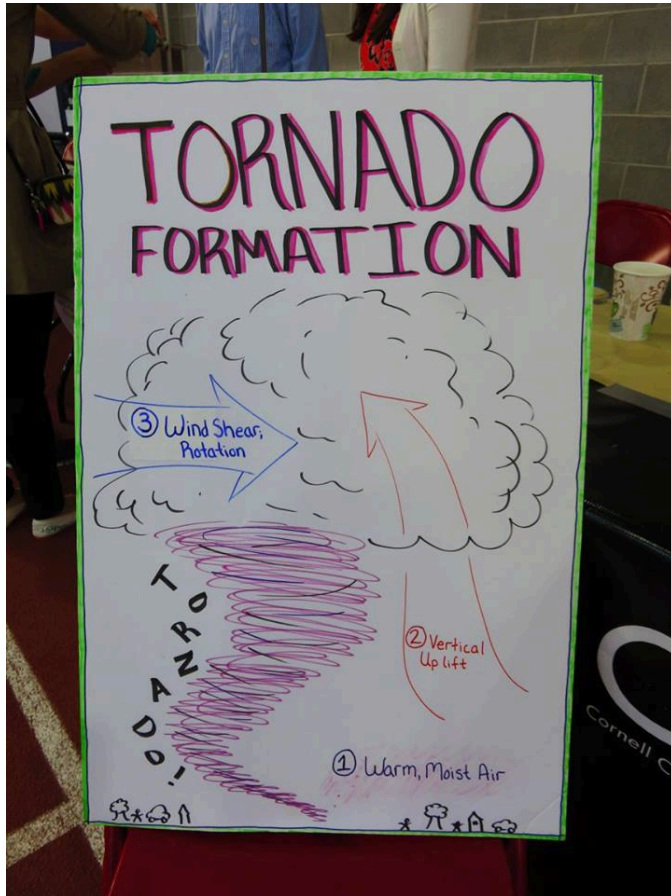 TORNADO
FORMATION
③ Wind Shear;
Rotation
TORNADO!
② Vertical
Up lift
① Warm, Moist Air
Cornell